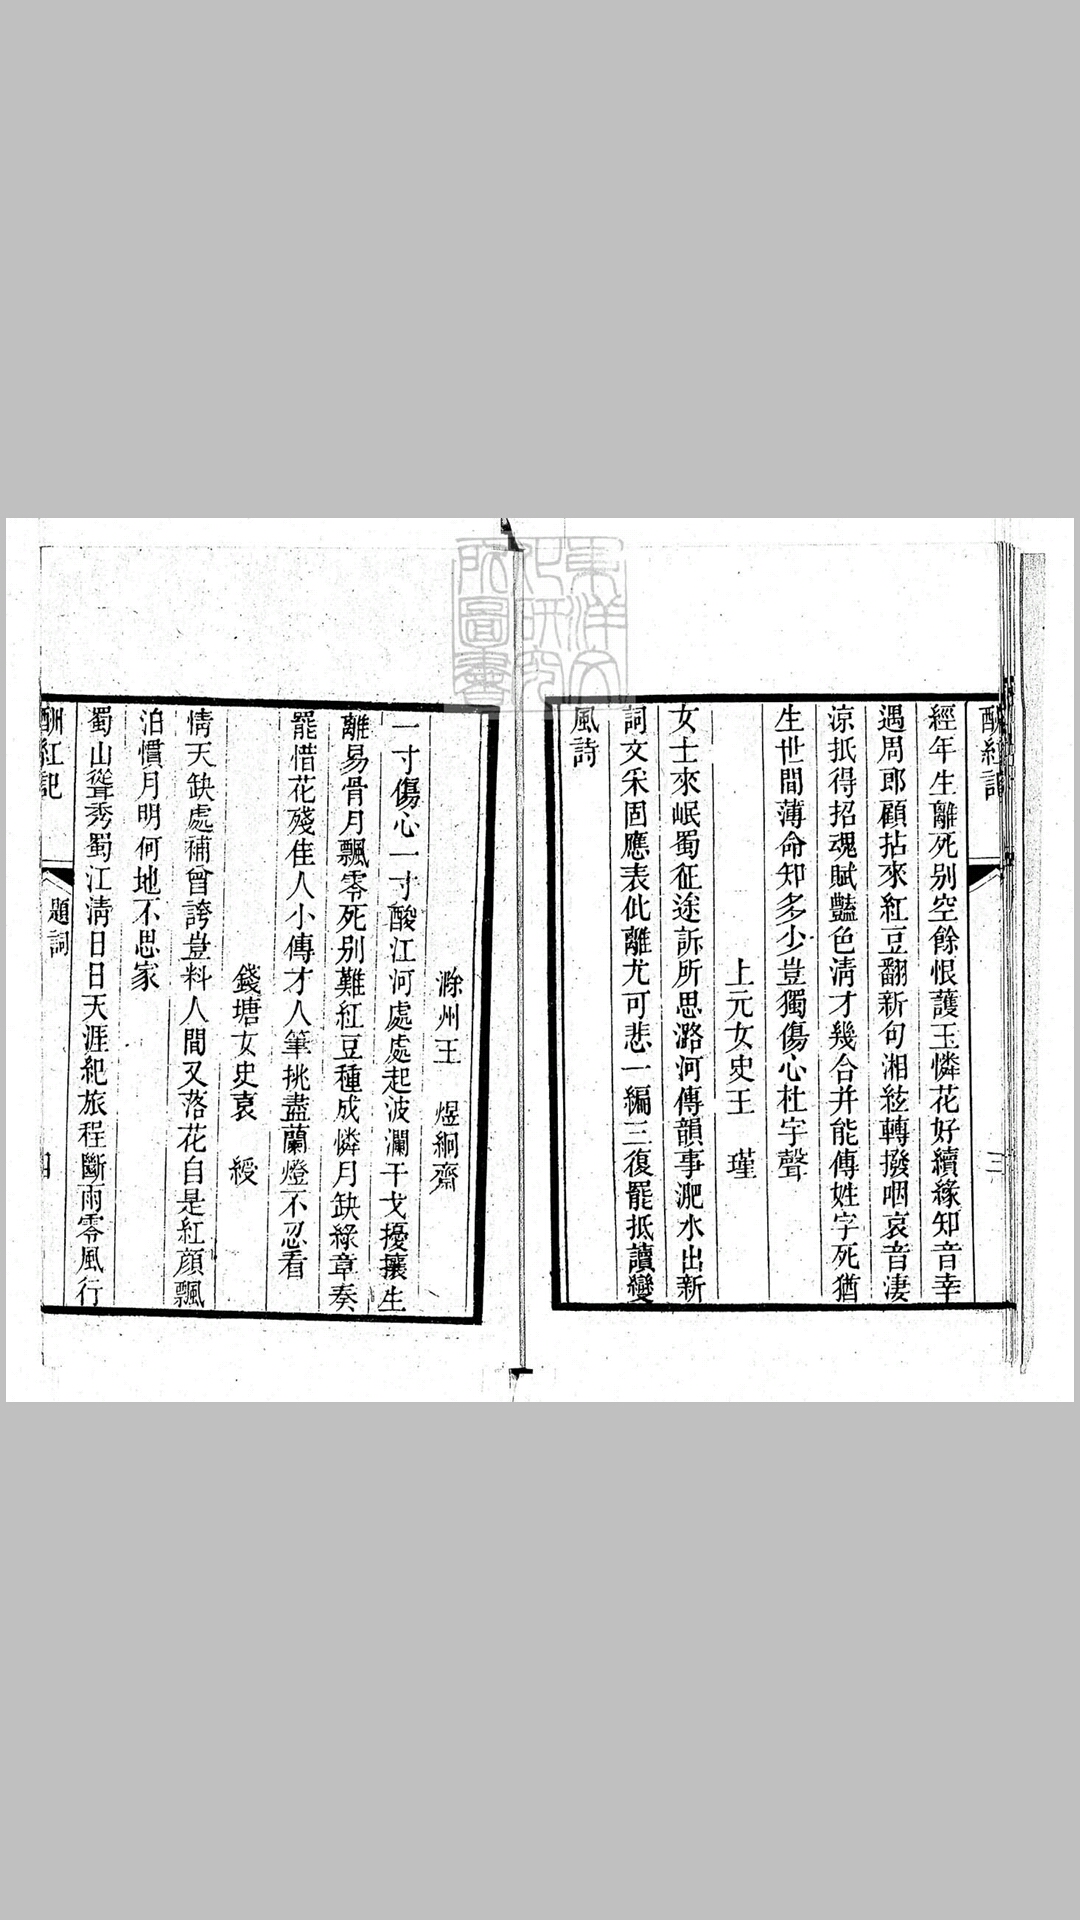 酬紅記
三
經年生離死别空餘恨護玉憐花好續緣知音幸
遇周郎顧拈來紅豆翻新句湘絃轉撥咽哀音淒
涼抵得招魂賦豔色清才幾合并能傳姓字死猶
生世間薄命知多少豈獨傷心杜宇聲
上元女史王　瑾
女士來岷蜀征途訴所思潞河傳韻事淝水出新
詞文采固應表仳離尤可悲一編三復罷抵讀變
風詩
滁州王　煜絅齋
一寸傷心一寸酸江河處處起波瀾干戈擾攘生
離易骨月飄零死别難紅豆種成憐月缺綠章奏
罷惜花殘佳人小傳才人筆挑盡蘭燈不忍看
錢塘女史袁　綬
情天缺處補曾誇豈料人間又落花自是紅顔飄
泊慣月明何地不思家
蜀山聳秀蜀江清日日天涯紀旅程斷雨零風行
酬紅記
題詞
四
東洋文化研究所圖書